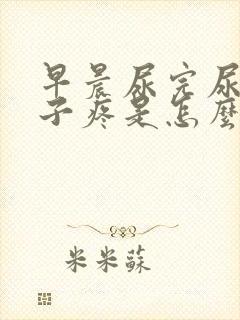 早晨尿完尿
子疼是怎麼
米米蘇